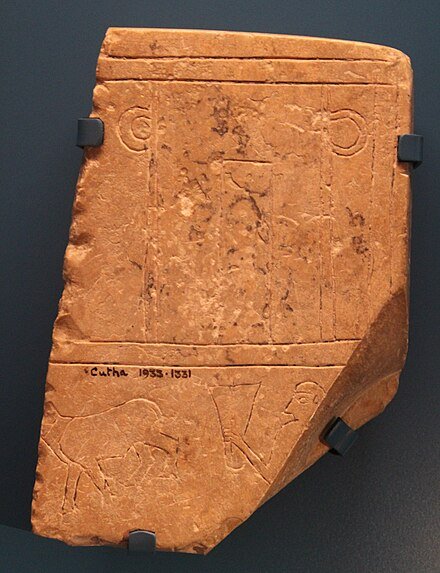 "Cutha 1933·1331